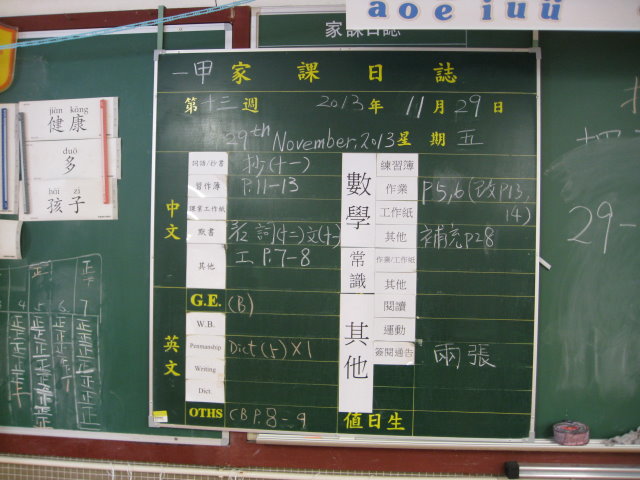 a o e i u ü
家課日誌
一甲 家課日誌
第十三週 2013年 11月29日
29th November, 2013 星期五
中文
詞語/抄書 抄(十一)
習作簿 P.11-13
課業工作紙
默書 詞(十二)文(十一)
其他 工.P.7-8
英文
G.E. (B)
W.B.
Penmanship Dict (5) X1
Writing
Dict.
OTHS CB P.8-9
數學
練習簿
作業 P5,6(改P13,
14)
工作紙
其他 補充P28
常識
作業/工作紙
其他
其他
閱讀
運動
簽閱通告 兩張
值日生
jiàn kāng
健康
duō
多
hái zi
孩子
4 5 6 7
29-